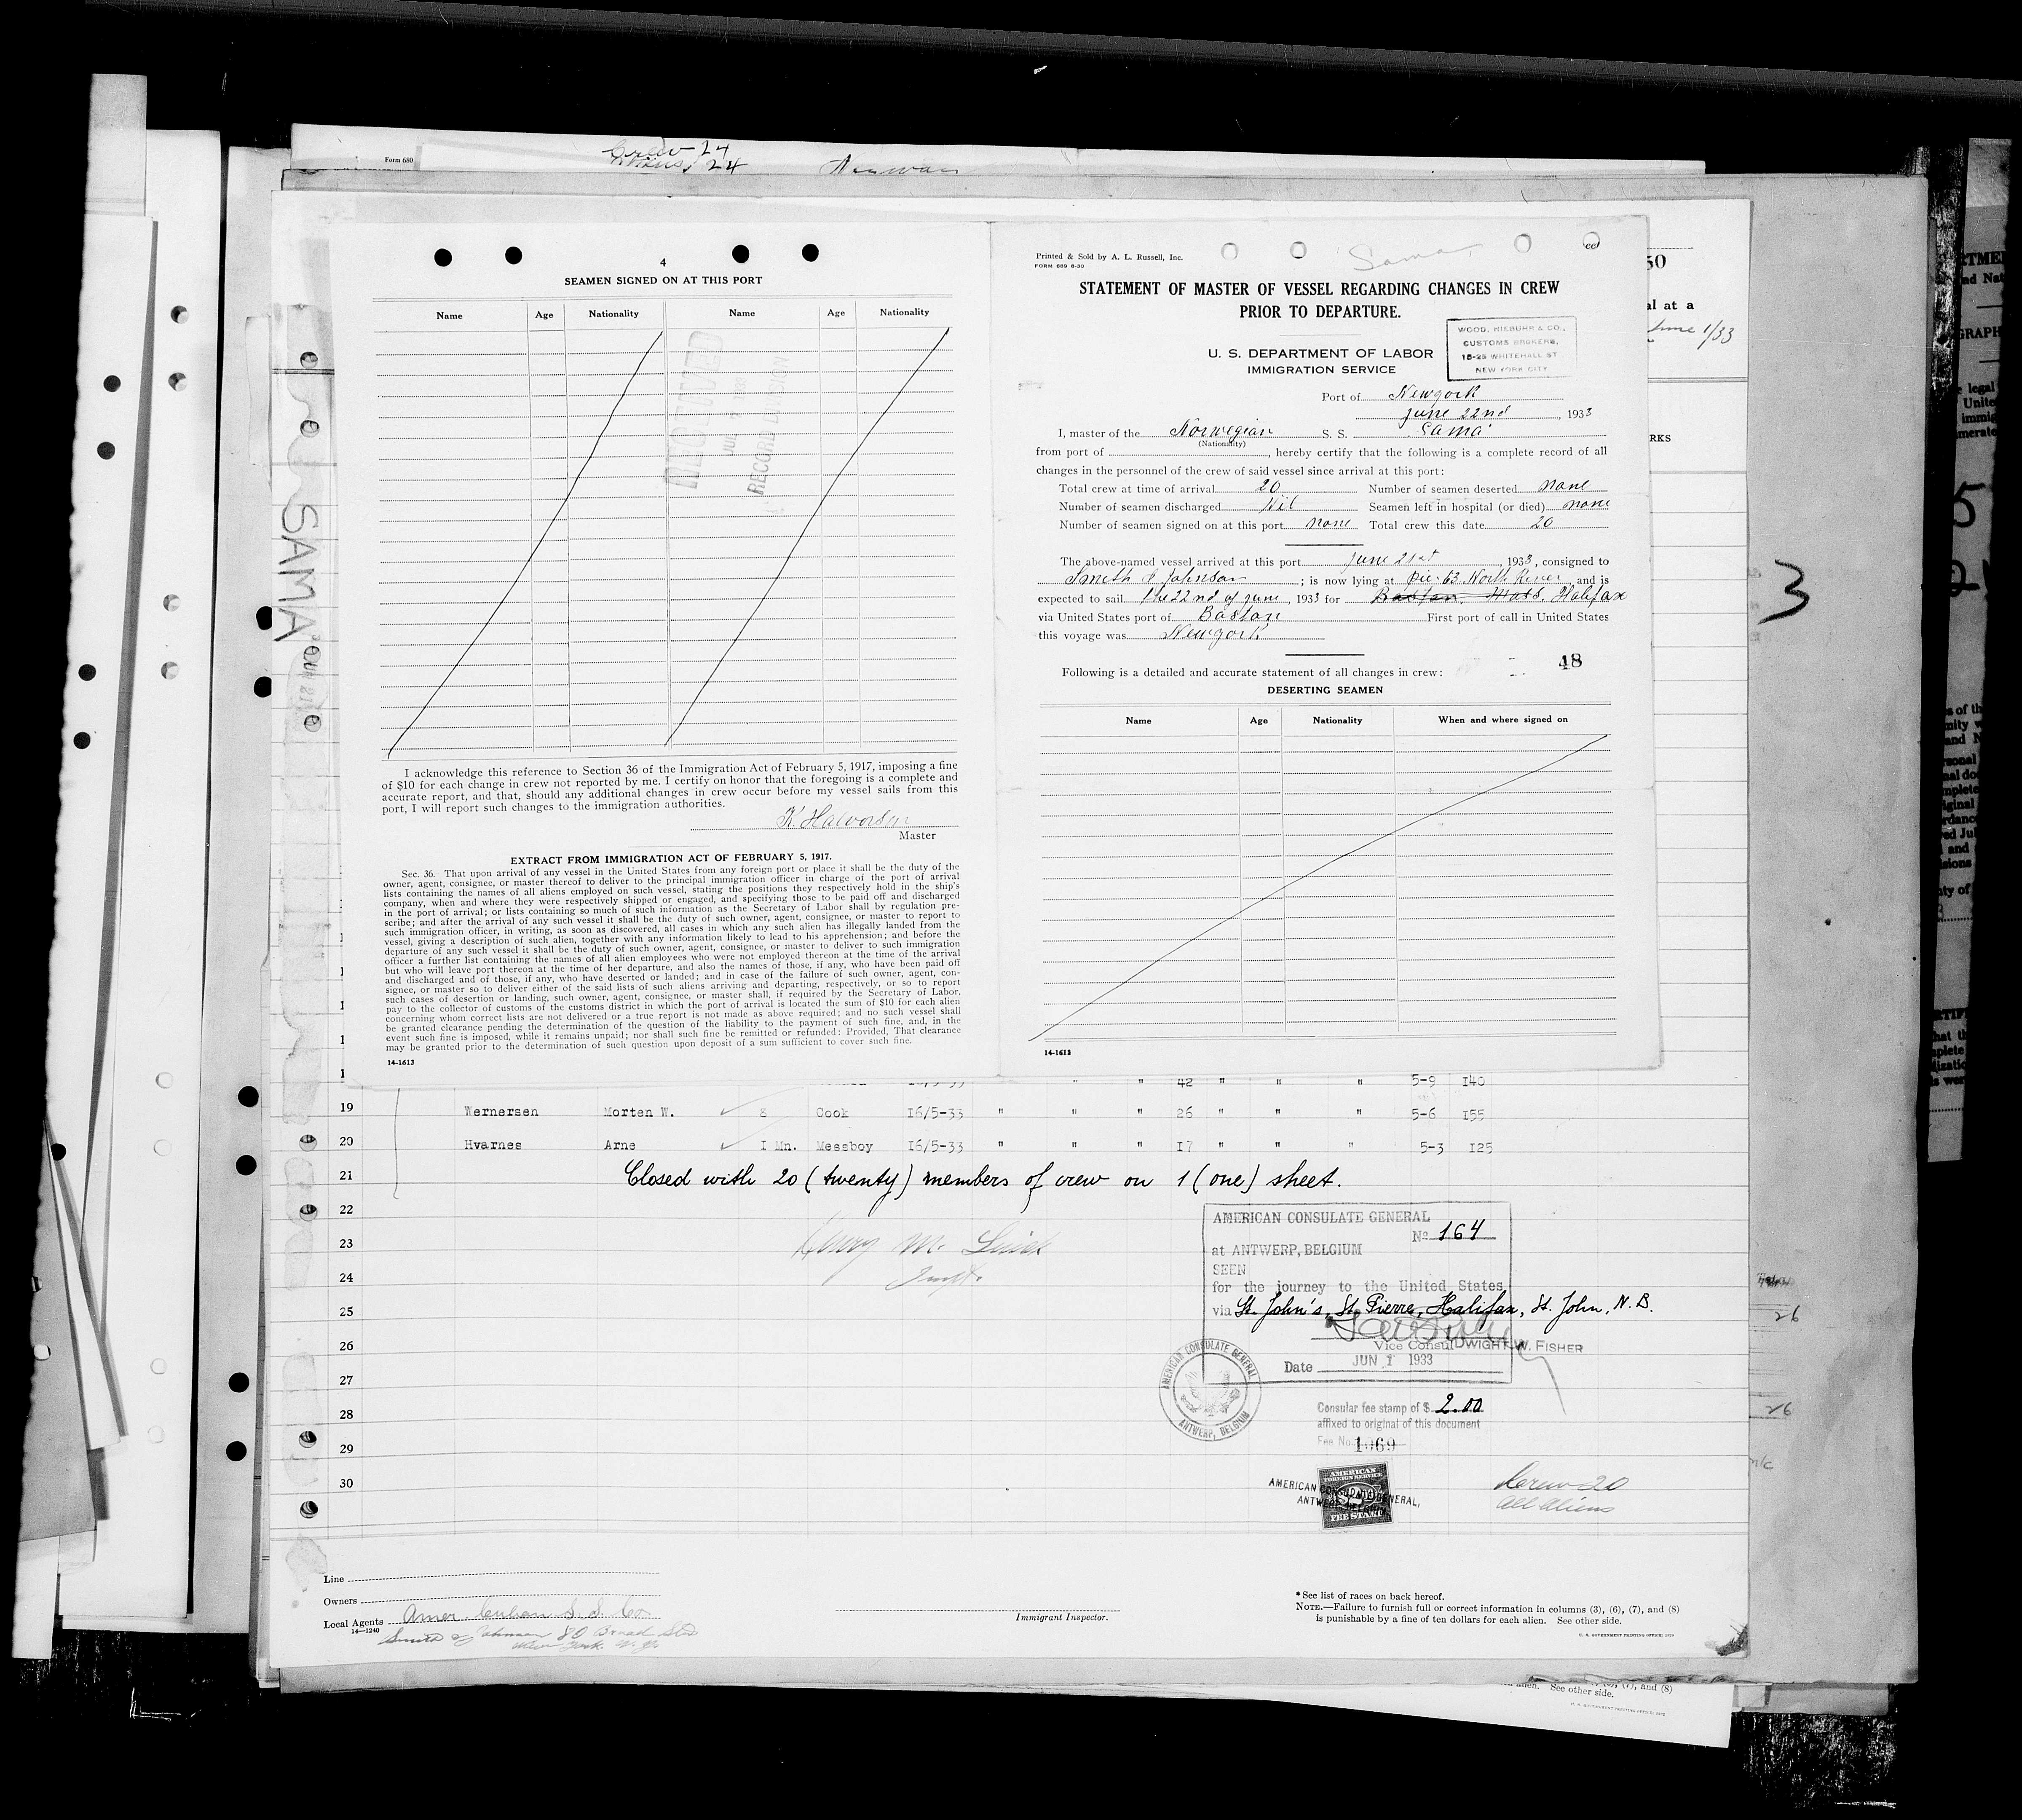 Form 680
Crew 24
Aliens 24
4
SEAMEN SIGNED ON AT THIS PORT
Name Age Nationality Name Age Nationality
RECEIVED
RECORD DIVISION
I acknowledge this reference to Section 36 of the Immigration Act of February 5, 1917, imposing a fine
of $10 for each change in crew not reported by me. I certify on honor that the foregoing is a complete and
accurate report, and that, should any additional changes in crew occur before my vessel sails from this
port, I will report such changes to the immigration authorities.
K. Halvorsen
Master
EXTRACT FROM IMMIGRATION ACT OF FEBRUARY 5, 1917.
Sec. 36. That upon arrival of any vessel in the United States from any foreign port or place it shall be the duty of the
owner, agent, consignee, or master thereof to deliver to the principal immigration officer in charge of the port of arrival
lists containing the names of all aliens employed on such vessel, stating the positions they respectively hold in the ship's
company, when and where they were respectively shipped or engaged, and specifying those to be paid off and discharged
in the port of arrival; or lists containing so much of such information as the Secretary of Labor shall by regulation pre-
scribe; and after the arrival of any such vessel it shall be the duty of such owner, agent, consignee, or master to report to
such immigration officer, in writing, as soon as discovered, all cases in which any such alien has illegally landed from the
vessel, giving a description of such alien, together with any information likely to lead to his apprehension; and before the
departure of any such vessel it shall be the duty of such owner, agent, consignee, or master to deliver to such immigration
officer a further list containing the names of all alien employees who were not employed thereon at the time of the arrival
but who will leave port thereon at the time of her departure, and also the names of those, if any, who have been paid off
and discharged and of those, if any, who have deserted or landed; and in case of the failure of such owner, agent, con-
signee, or master so to deliver either of the said lists of such aliens arriving and departing, respectively, or so to report
such cases of desertion or landing, such owner, agent, consignee, or master shall, if required by the Secretary of Labor,
pay to the collector of customs of the customs district in which the port of arrival is located the sum of $10 for each alien
concerning whom correct lists are not delivered or a true report is not made as above required; and no such vessel shall
be granted clearance pending the determination of the question of the liability to the payment of such fine, and, in the
event such fine is imposed, while it remains unpaid; nor shall such fine be remitted or refunded: Provided, That clearance
may be granted prior to the determination of such question upon deposit of a sum sufficient to cover such fine.
14-1613
Printed & Sold by A. L. Russell, Inc.
FORM 689 6-30
Sama
STATEMENT OF MASTER OF VESSEL REGARDING CHANGES IN CREW
PRIOR TO DEPARTURE.
WOOD, NIEBUHR & CO.,
CUSTOMS BROKERS,
15-25 WHITEHALL ST
NEW YORK CITY
U. S. DEPARTMENT OF LABOR
IMMIGRATION SERVICE
Port of Newyork
june 22nd, 1933
I, master of the Norwegian S. S. Sama
(Nationality)
from port of , hereby certify that the following is a complete record of all
changes in the personnel of the crew of said vessel since arrival at this port:
Total crew at time of arrival 20 Number of seamen deserted none
Number of seamen discharged Nil Seamen left in hospital (or died) none
Number of seamen signed on at this port none Total crew this date 20
The above-named vessel arrived at this port june 21st, 1933, consigned to
Smith & Johnson ; is now lying at Pier 63 North River and is
expected to sail the 22nd of june, 1933 for Boston. Mass. Halifax
via United States port of Boston First port of call in United States
this voyage was Newyork
48
Following is a detailed and accurate statement of all changes in crew:
DESERTING SEAMEN
Name Age Nationality When and where signed on
14-1613
al at a
June 1/33
RKS
SAMA
3
42 " " " 5-9 140
19 Wernersen Morten W. 8 Cook 16/5-33 " " " 26 " " " 5-6 155
20 Hvarnes Arne 1 Mn. Messboy 16/5-33 " " " 17 " " " 5-3 125
21 Closed with 20 (twenty) members of crew on 1 (one) sheet.
22
23
24
25
26
27
28
29
30
AMERICAN CONSULATE GENERAL
No 164
at ANTWERP, BELGIUM
SEEN
for the journey to the United States
via St. John's, St. Pierre, Halifax, St. John, N.B.
Vice Consul DWIGHT W. FISHER
Date JUN 1 1933
AMERICAN CONSULATE GENERAL
ANTWERP, BELGIUM
Consular fee stamp of $ 2.00
affixed to original of this document
Fee No. 1069
AMERICAN
FOREIGN SERVICE
FEE STAMP
AMERICAN CONSULATE GENERAL,
ANTWERP, BELGIUM
Crew 20
all aliens
26
26
Line
Owners
Local Agents Amer. Cuban S. S. Co
14-1240
Smith & Johnson 80 Broad St
New York. N. Y.
Immigrant Inspector.
* See list of races on back hereof.
NOTE.—Failure to furnish full or correct information in columns (3), (6), (7), and (8)
is punishable by a fine of ten dollars for each alien. See other side.
U. S. GOVERNMENT PRINTING OFFICE
(7), and (8)
See other side.